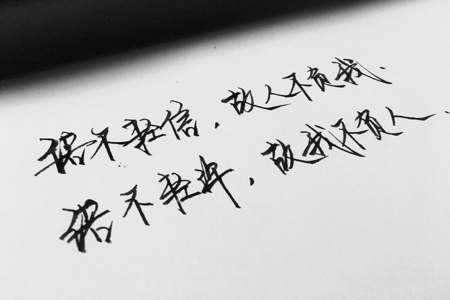 诺不轻信,故人不负我.
诺不轻许,故我不负人.